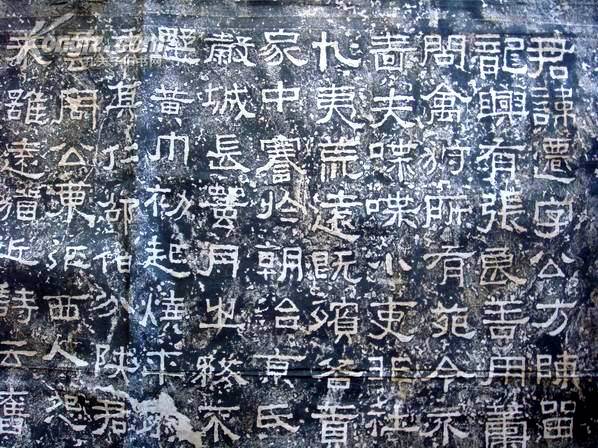 君諱遷字公方陳留
龍興有張良善用籌
問禽狩所有苑令不
嗇夫喋喋小吏非社
九夷荒遠既殯各貢
家中謇於朝治京氏
穀城長蠶月之務不
野黃巾初起燒平城
其仁邵伯分陝君
云周公東征西人怨
來雖遠猶近詩云舊